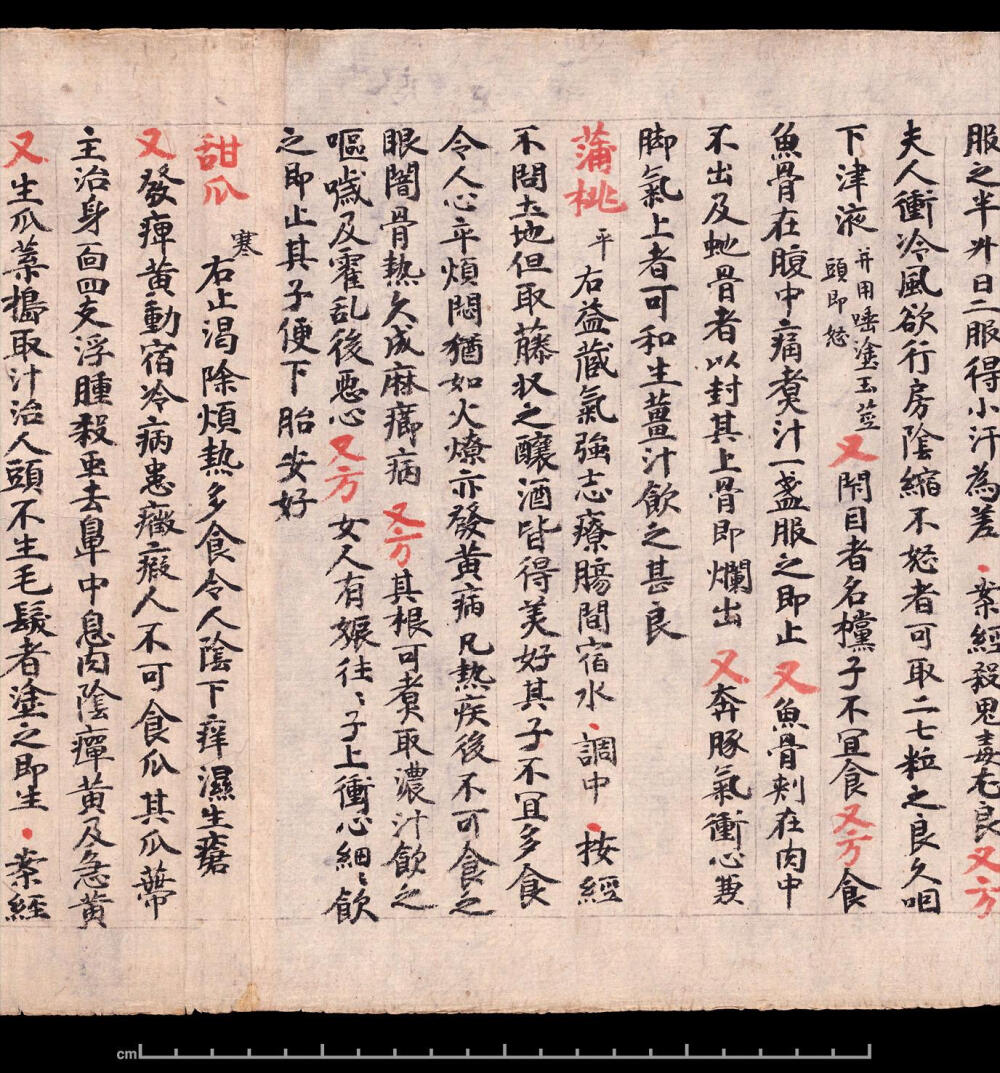 服之半升日二服得小汗為差・案經殺鬼毒尤良又方
夫人衝冷風欲行房陰縮不怒者可取二七粒之良久咽
下津液并用唾塗玉莖頭即怒又閇目者名欓子不冝食又方食
魚骨在腹中痛煑汁一盞服之即止又魚骨刾在肉中
不出及虵骨者以封其上骨即爛出又奔豚氣衝心兼
脚氣上者可和生薑汁飲之甚良
蒲桃平右益蔵氣強志療腸間宿水・調中・按經
不問土地但取藤收之釀酒皆得美好其子不冝多食
令人心卒煩悶猶如火燎亦發黄病凡熱疾後不可食之
眼闇骨熱久成麻癤病又方其根可煑取濃汁飲之
嘔噦及霍乱後惡心又方女人有娠往〻子上衝心細〻飲
之即止其子便下胎安好
甜瓜寒右止渴除煩熱多食令人陰下痒濕生瘡
又發痺黄動宿冷病患癥瘕人不可食瓜其瓜蔕
主治身面四支浮腫殺䖝去鼻中息肉陰癉黄及急黄
又生瓜葉搗取汁治人頭不生毛髮者塗之即生・案經